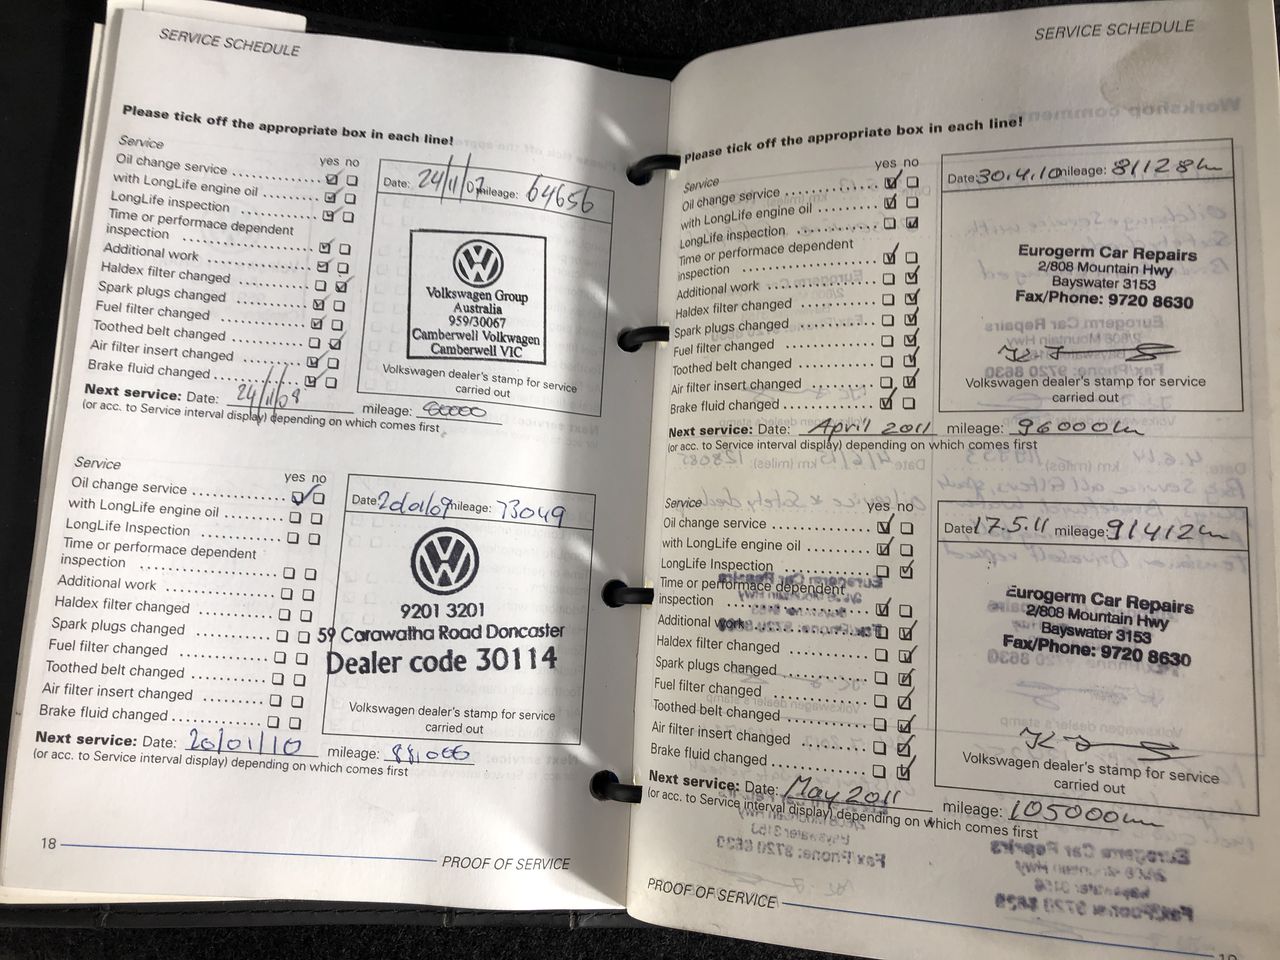 SERVICE SCHEDULE
Please tick off the appropriate box in each line!
Service
yes no
Oil change service
with LongLife engine oil
LongLife inspection
Time or performace dependent
inspection
Additional work
Haldex filter changed
Spark plugs changed
Fuel filter changed
Toothed belt changed
Air filter insert changed
Brake fluid changed
Next service: Date: 24/11/09 mileage: 80000
(or acc. to Service interval display) depending on which comes first
Date: 24/11/07 mileage: 64656
Volkswagen Group
Australia
959/30067
Camberwell Volkwagen
Camberwell VIC
Volkswagen dealer's stamp for service
carried out
Service
yes no
Oil change service
with LongLife engine oil
LongLife Inspection
Time or performace dependent
inspection
Additional work
Haldex filter changed
Spark plugs changed
Fuel filter changed
Toothed belt changed
Air filter insert changed
Brake fluid changed
Next service: Date: 20/01/10 mileage: 88,000
(or acc. to Service interval display) depending on which comes first
Date: mileage: 73049
9201 3201
59 Carawatha Road Doncaster
Dealer code 30114
Volkswagen dealer's stamp for service
carried out
18
PROOF OF SERVICE
SERVICE SCHEDULE
Please tick off the appropriate box in each line!
Service
yes no
Oil change service
with LongLife engine oil
LongLife inspection
Time or performace dependent
inspection
Additional work
Haldex filter changed
Spark plugs changed
Fuel filter changed
Toothed belt changed
Air filter insert changed
Brake fluid changed
Next service: Date: April 2011 mileage: 96000km
(or acc. to Service interval display) depending on which comes first
Date: 30.4.10 mileage: 81128km
Eurogerm Car Repairs
2/808 Mountain Hwy
Bayswater 3153
Fax/Phone: 9720 8630
Volkswagen dealer's stamp for service
carried out
Service
yes no
Oil change service
with LongLife engine oil
LongLife Inspection
Time or performace dependent
inspection
Additional work
Haldex filter changed
Spark plugs changed
Fuel filter changed
Toothed belt changed
Air filter insert changed
Brake fluid changed
Next service: Date: May 2011 mileage: 105000km
(or acc. to Service interval display) depending on which comes first
Date: 17.5.11 mileage: 91412km
Eurogerm Car Repairs
2/808 Mountain Hwy
Bayswater 3153
Fax/Phone: 9720 8630
Volkswagen dealer's stamp for service
carried out
PROOF OF SERVICE